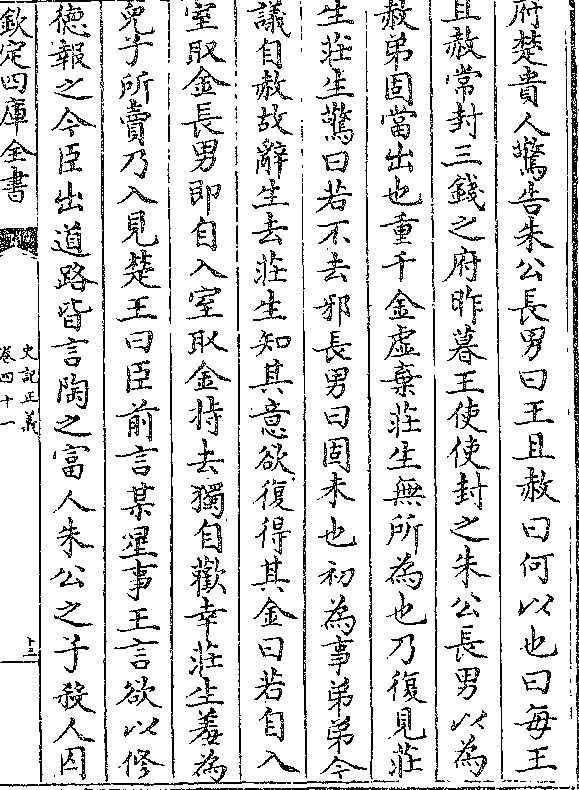 府楚貴人驚告朱公長男曰王且赦曰何以也曰每王
且赦常封三錢之府昨暮王使使封之朱公長男以為
赦弟固當出也重千金虛棄莊生無所為也乃復見莊
生莊生驚曰若不去邪長男曰固未也初為事弟弟今
議自赦故辭生去莊生知其意欲復得其金曰若自入
室取金長男即自入室取金持去獨自歡幸莊生羞為
兒子所賣乃入見楚王曰臣前言某星事王言欲以修
德報之今臣出道路皆言陶之富人朱公之子殺人囚
欽定四庫全書
史記正義
卷四十一
十三